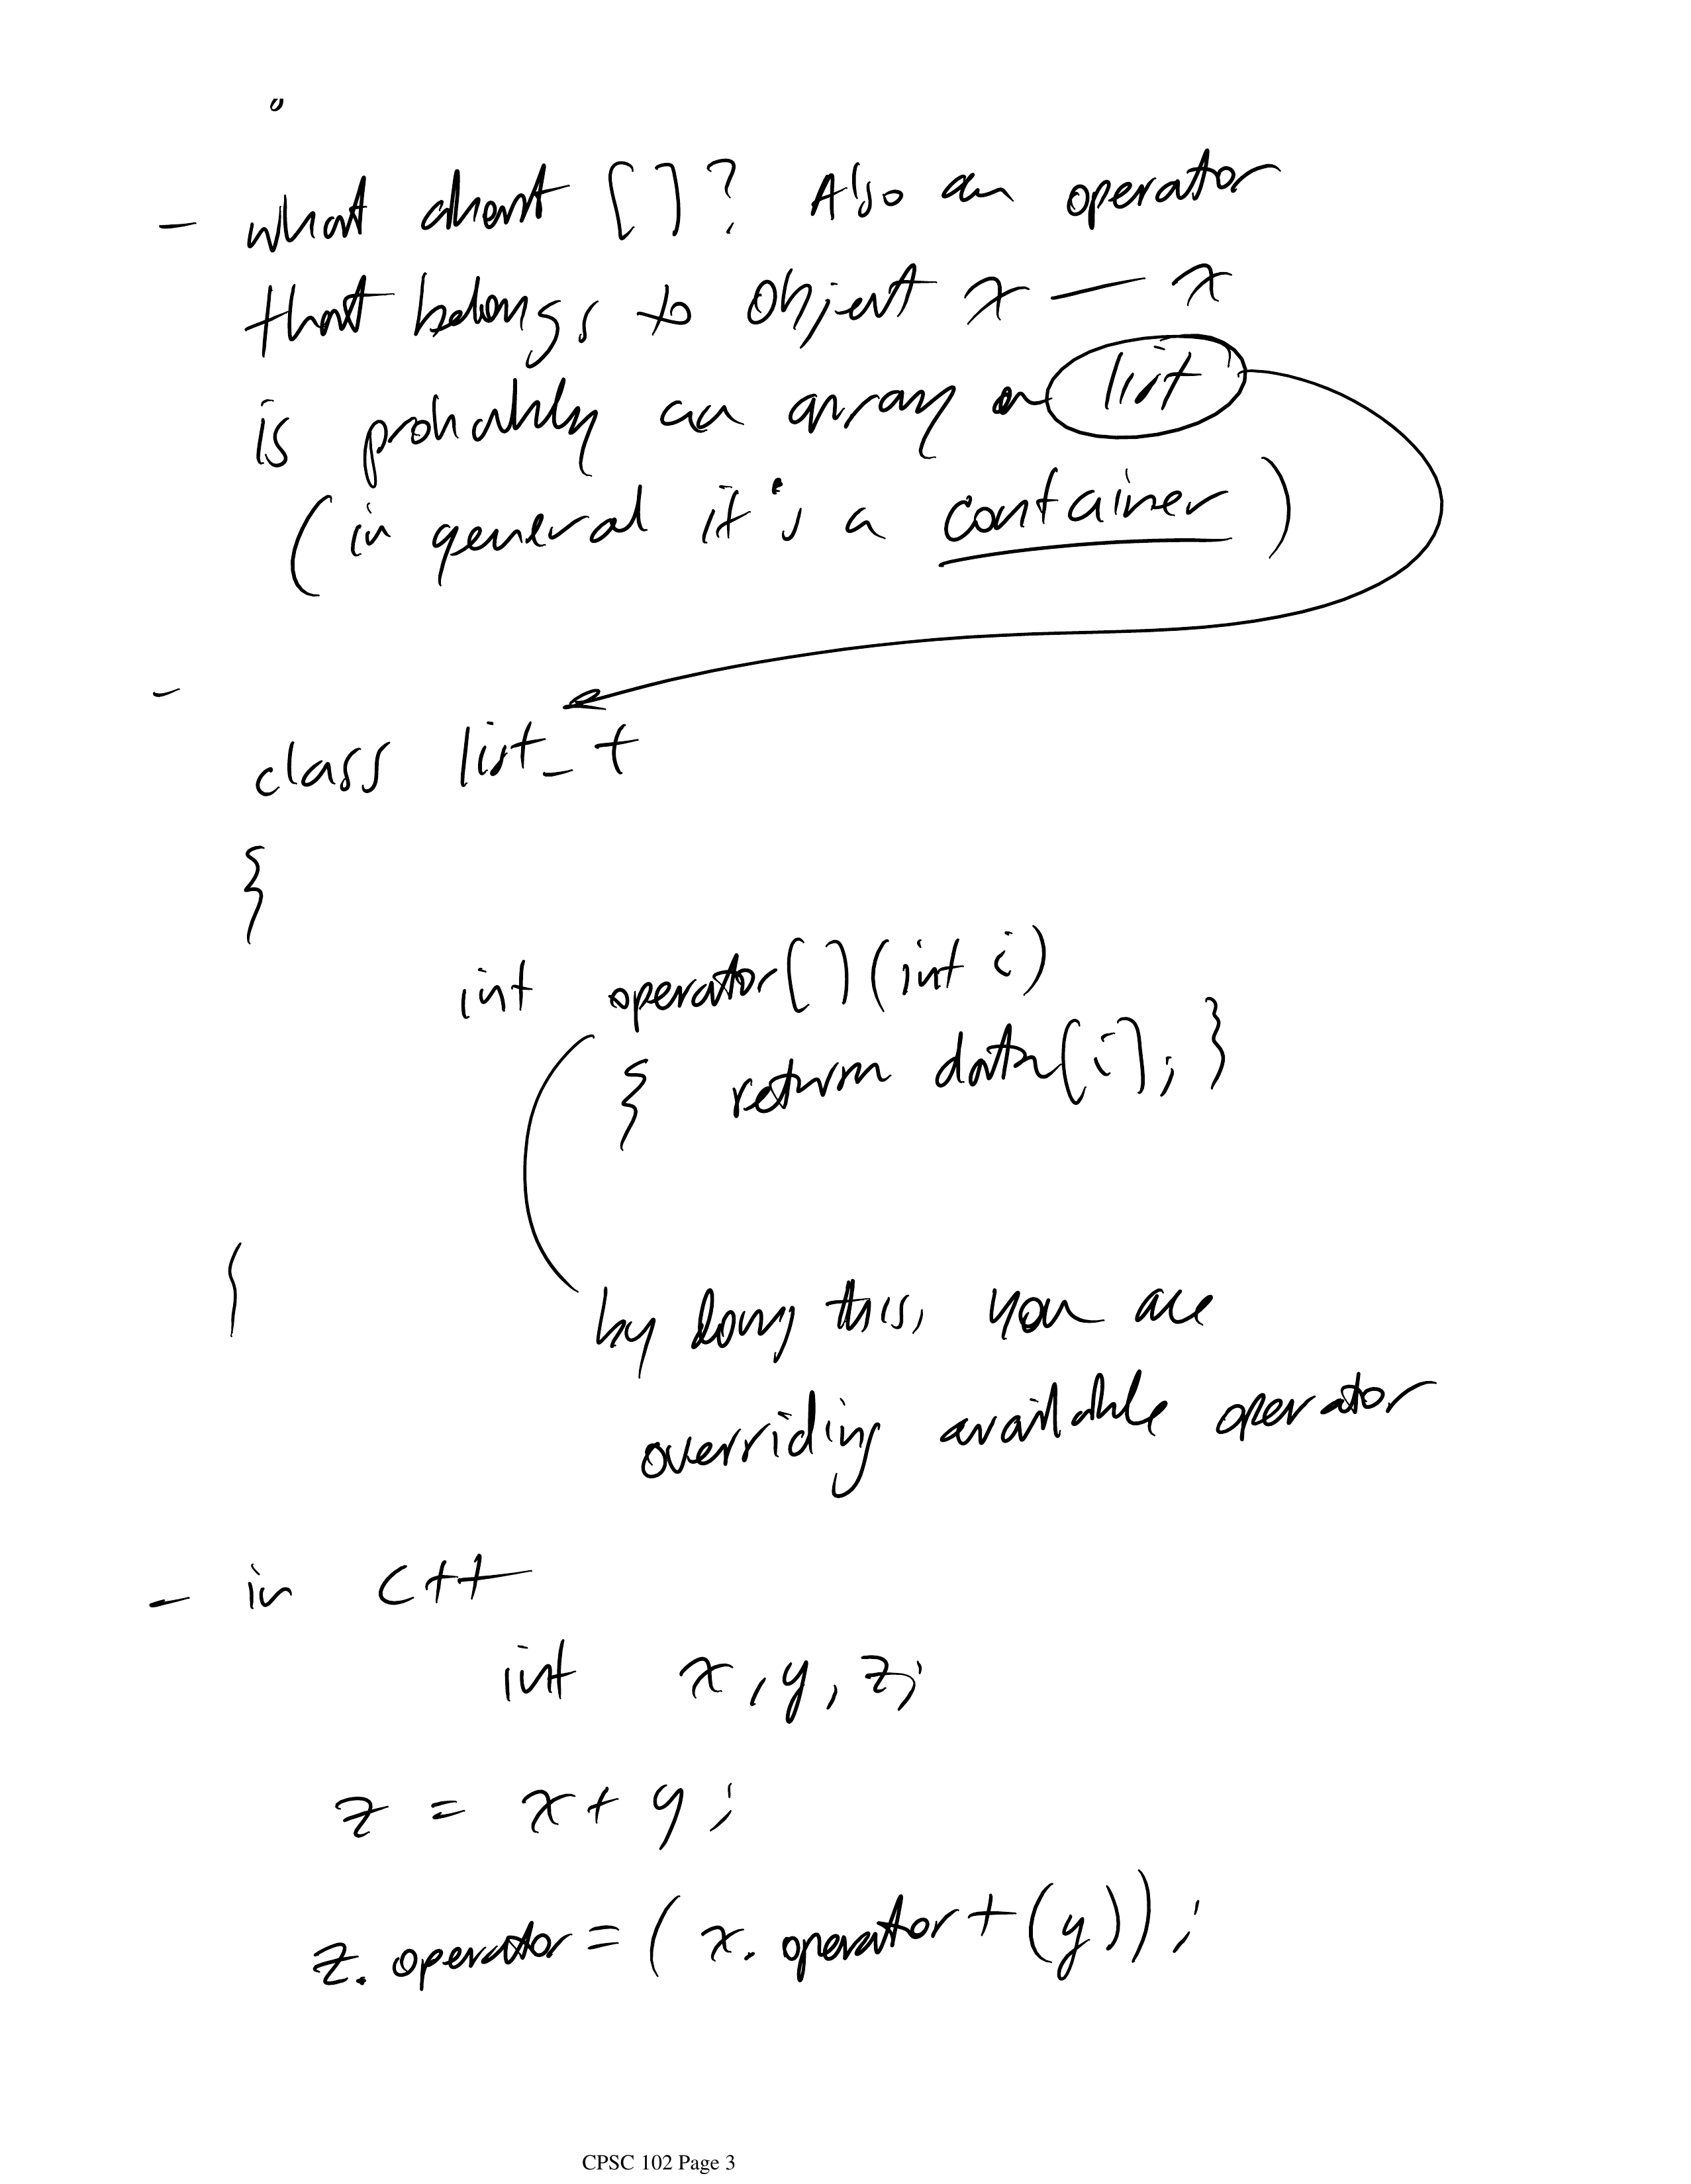 - what about []? Also an operator
that belongs to object x — x
is probably an array or list
(in general it's a container)
-
class list_t
{
int operator[](int i)
{ return data[i]; }
}
by doing this, you are
overriding available operator
- in C++
int x, y, z;
z = x + y;
z.operator=(x.operator+(y));
CPSC 102 Page 3